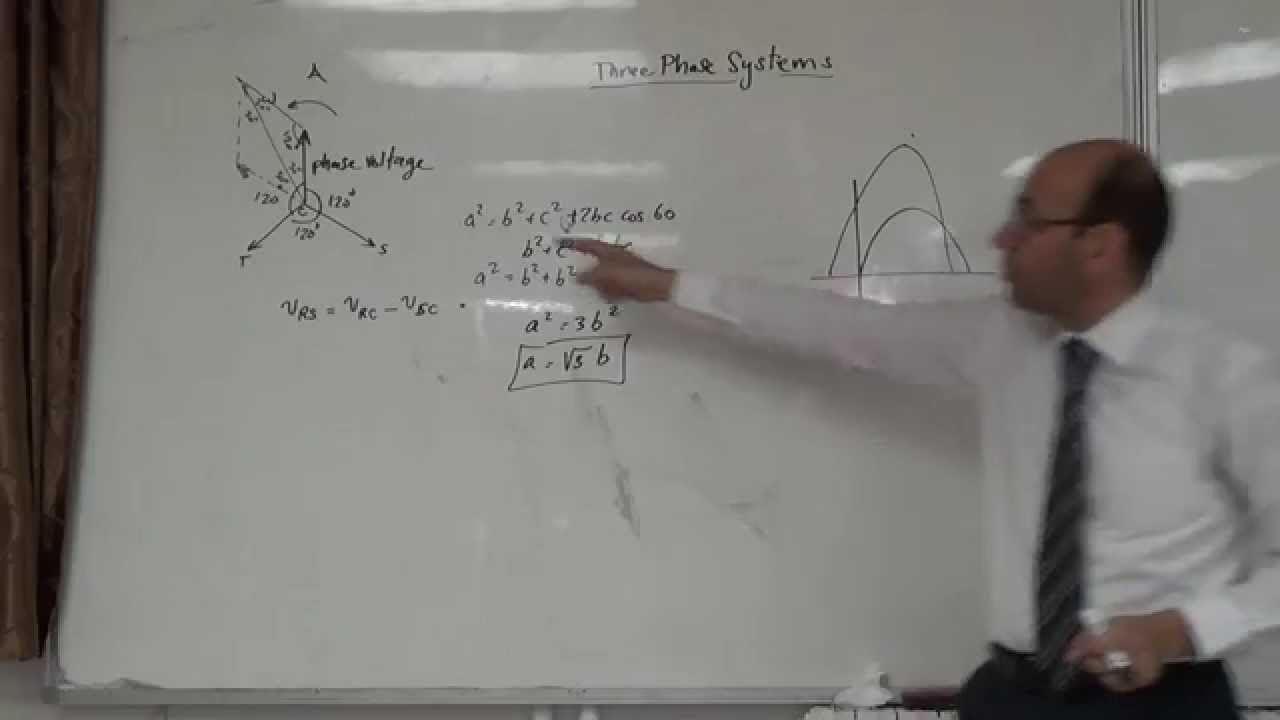 Three Phase Systems
phase voltage
120
120°
120°
c
r
s
a² = b² + c² + 2bc cos 60
b² + c²
a² = b² + b²
a² = 3b²
a = √3 b